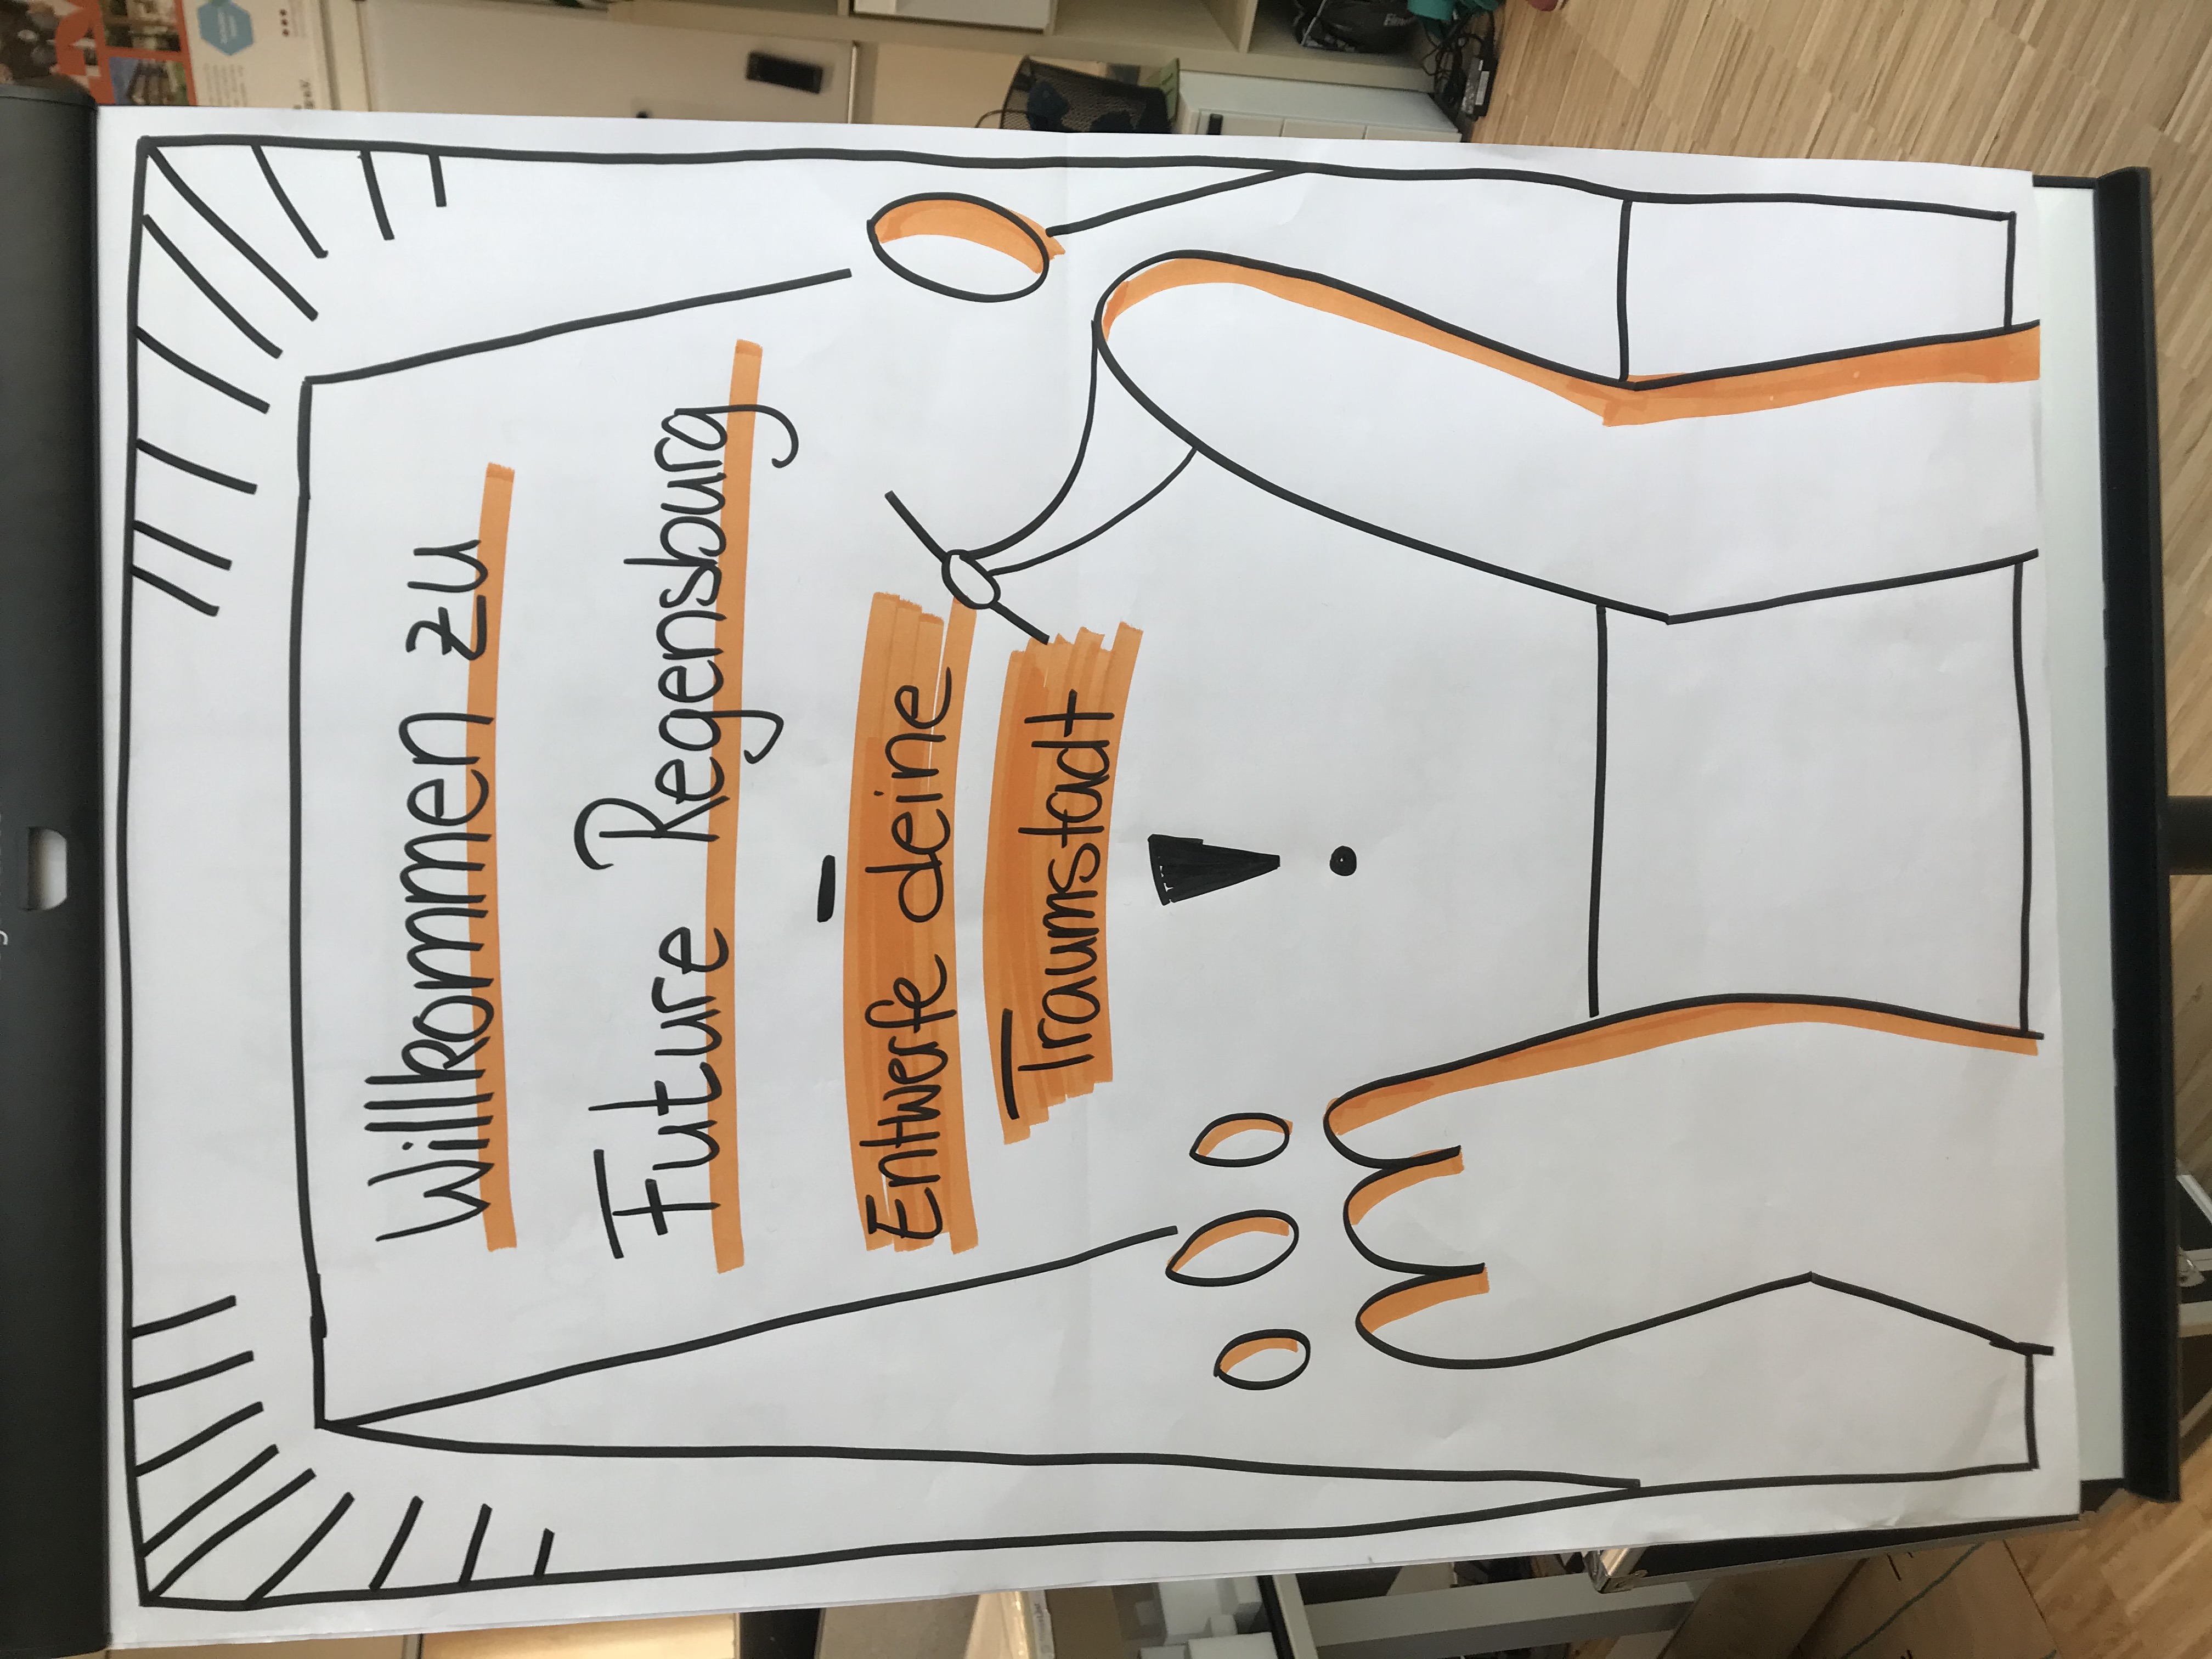 Willkommen zu
Future Regensburg
-
Entwerfe deine
Traumstadt
!